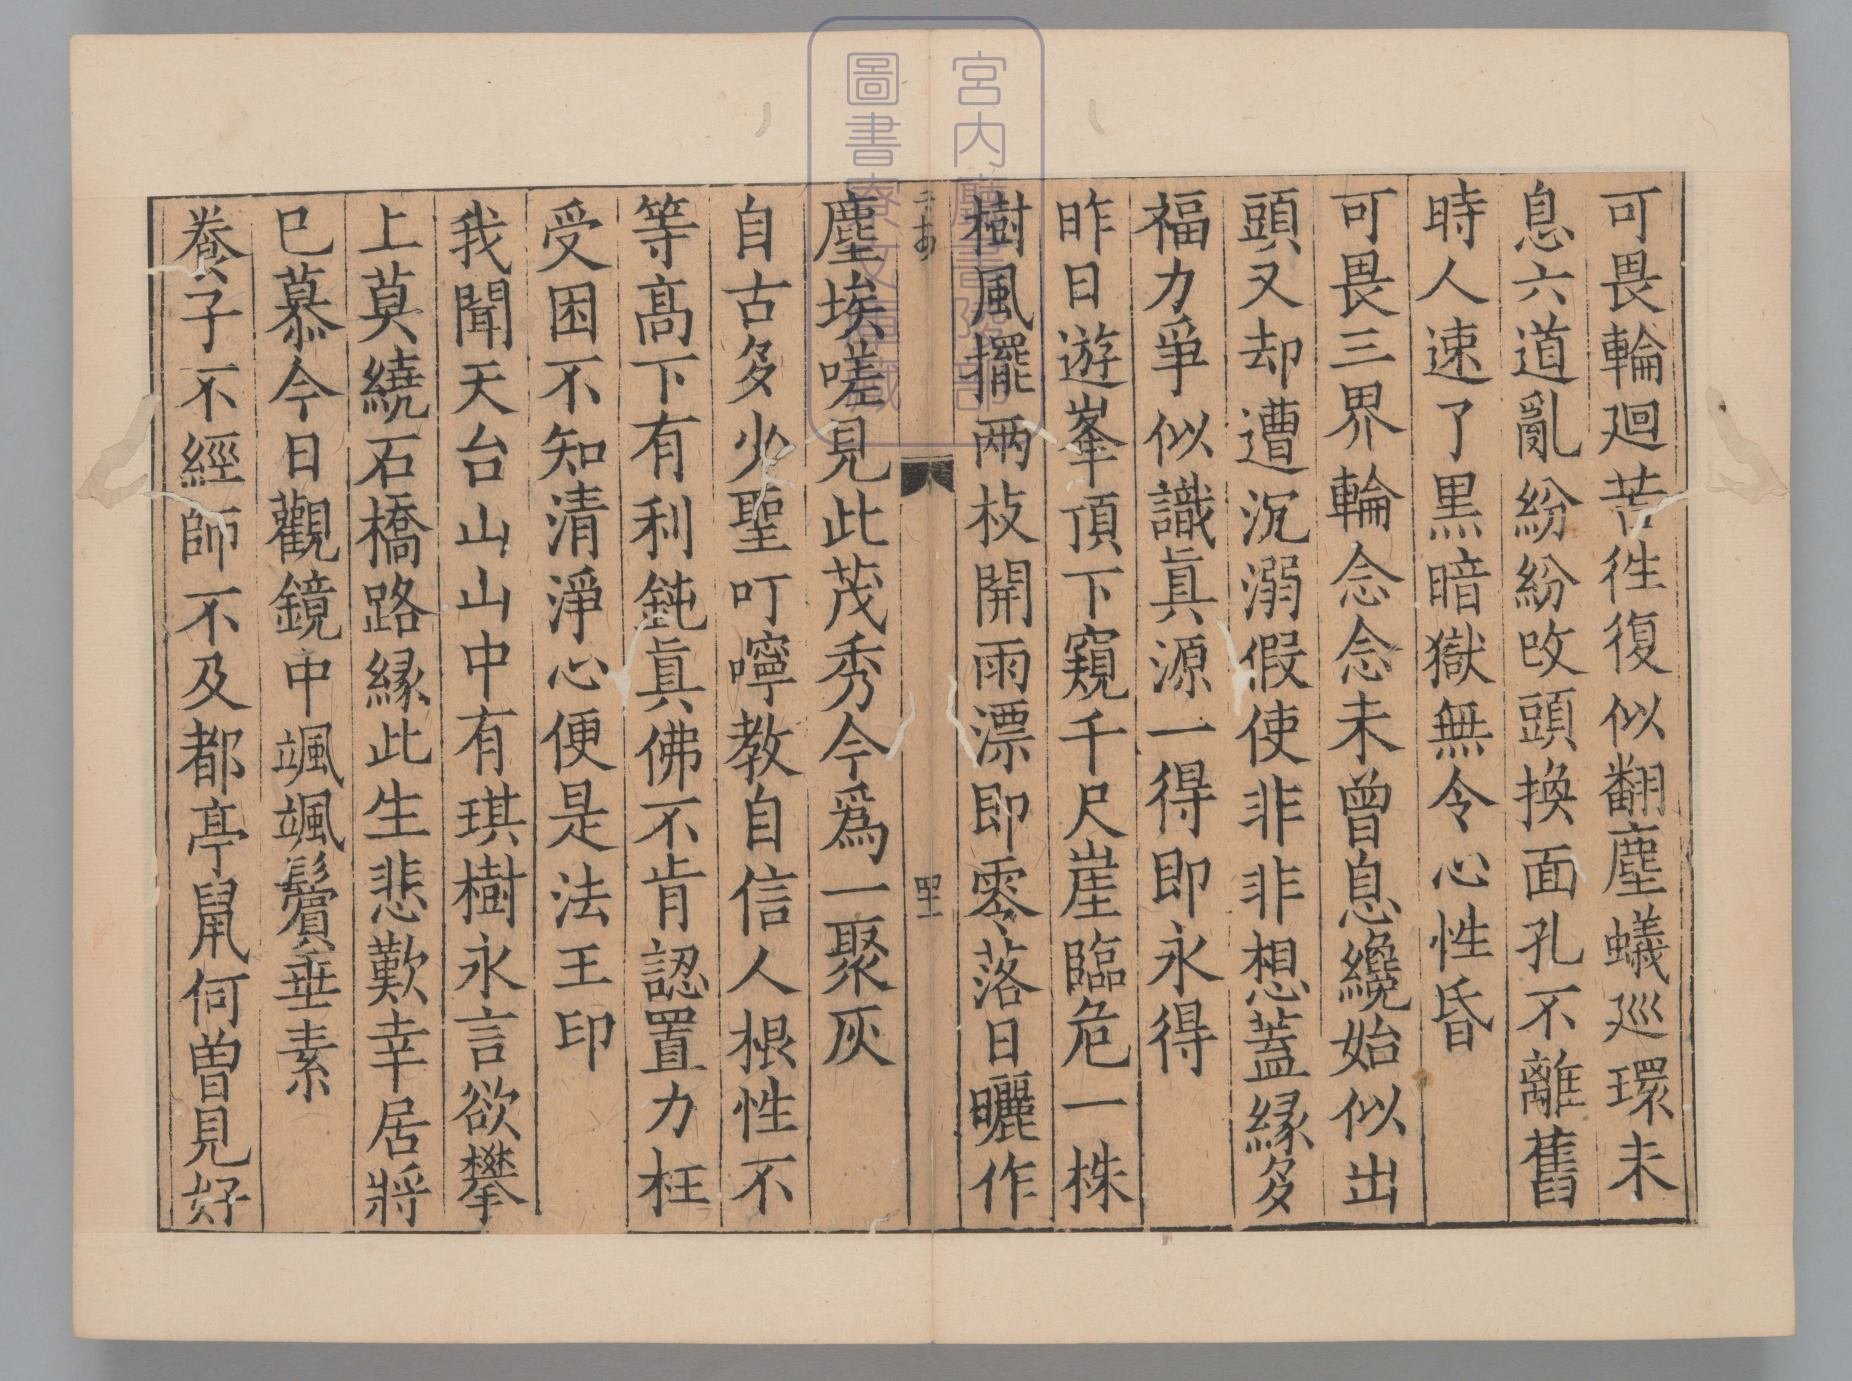 可畏輪迴苦徃復似翻塵蟻巡環未
息六道亂紛紛改頭換面孔不離舊
時人速了黒暗獄無令心性昏
可畏三界輪念念未曾息纔始似出
頭又却遭沉溺假使非非想蓋緣多
福力爭似識眞源一得即永得
昨日遊峯頂下窺千尺崖臨危一株
樹風擺兩枝開雨漂即零落日曬作
塵埃嗟見此茂秀今爲一聚灰
自古多少聖叮嚀教自信人根性不
等高下有利鈍眞佛不肯認置力枉
受困不知清淨心便是法王印
我聞天台山山中有琪樹永言欲攀
上莫繞石橋路緣此生悲歎幸居將
巳慕今日觀鏡中颯颯鬢垂素
養子不經師不及都亭鼠何曽見好
宮内廳書陵部
圖書寮文庫藏